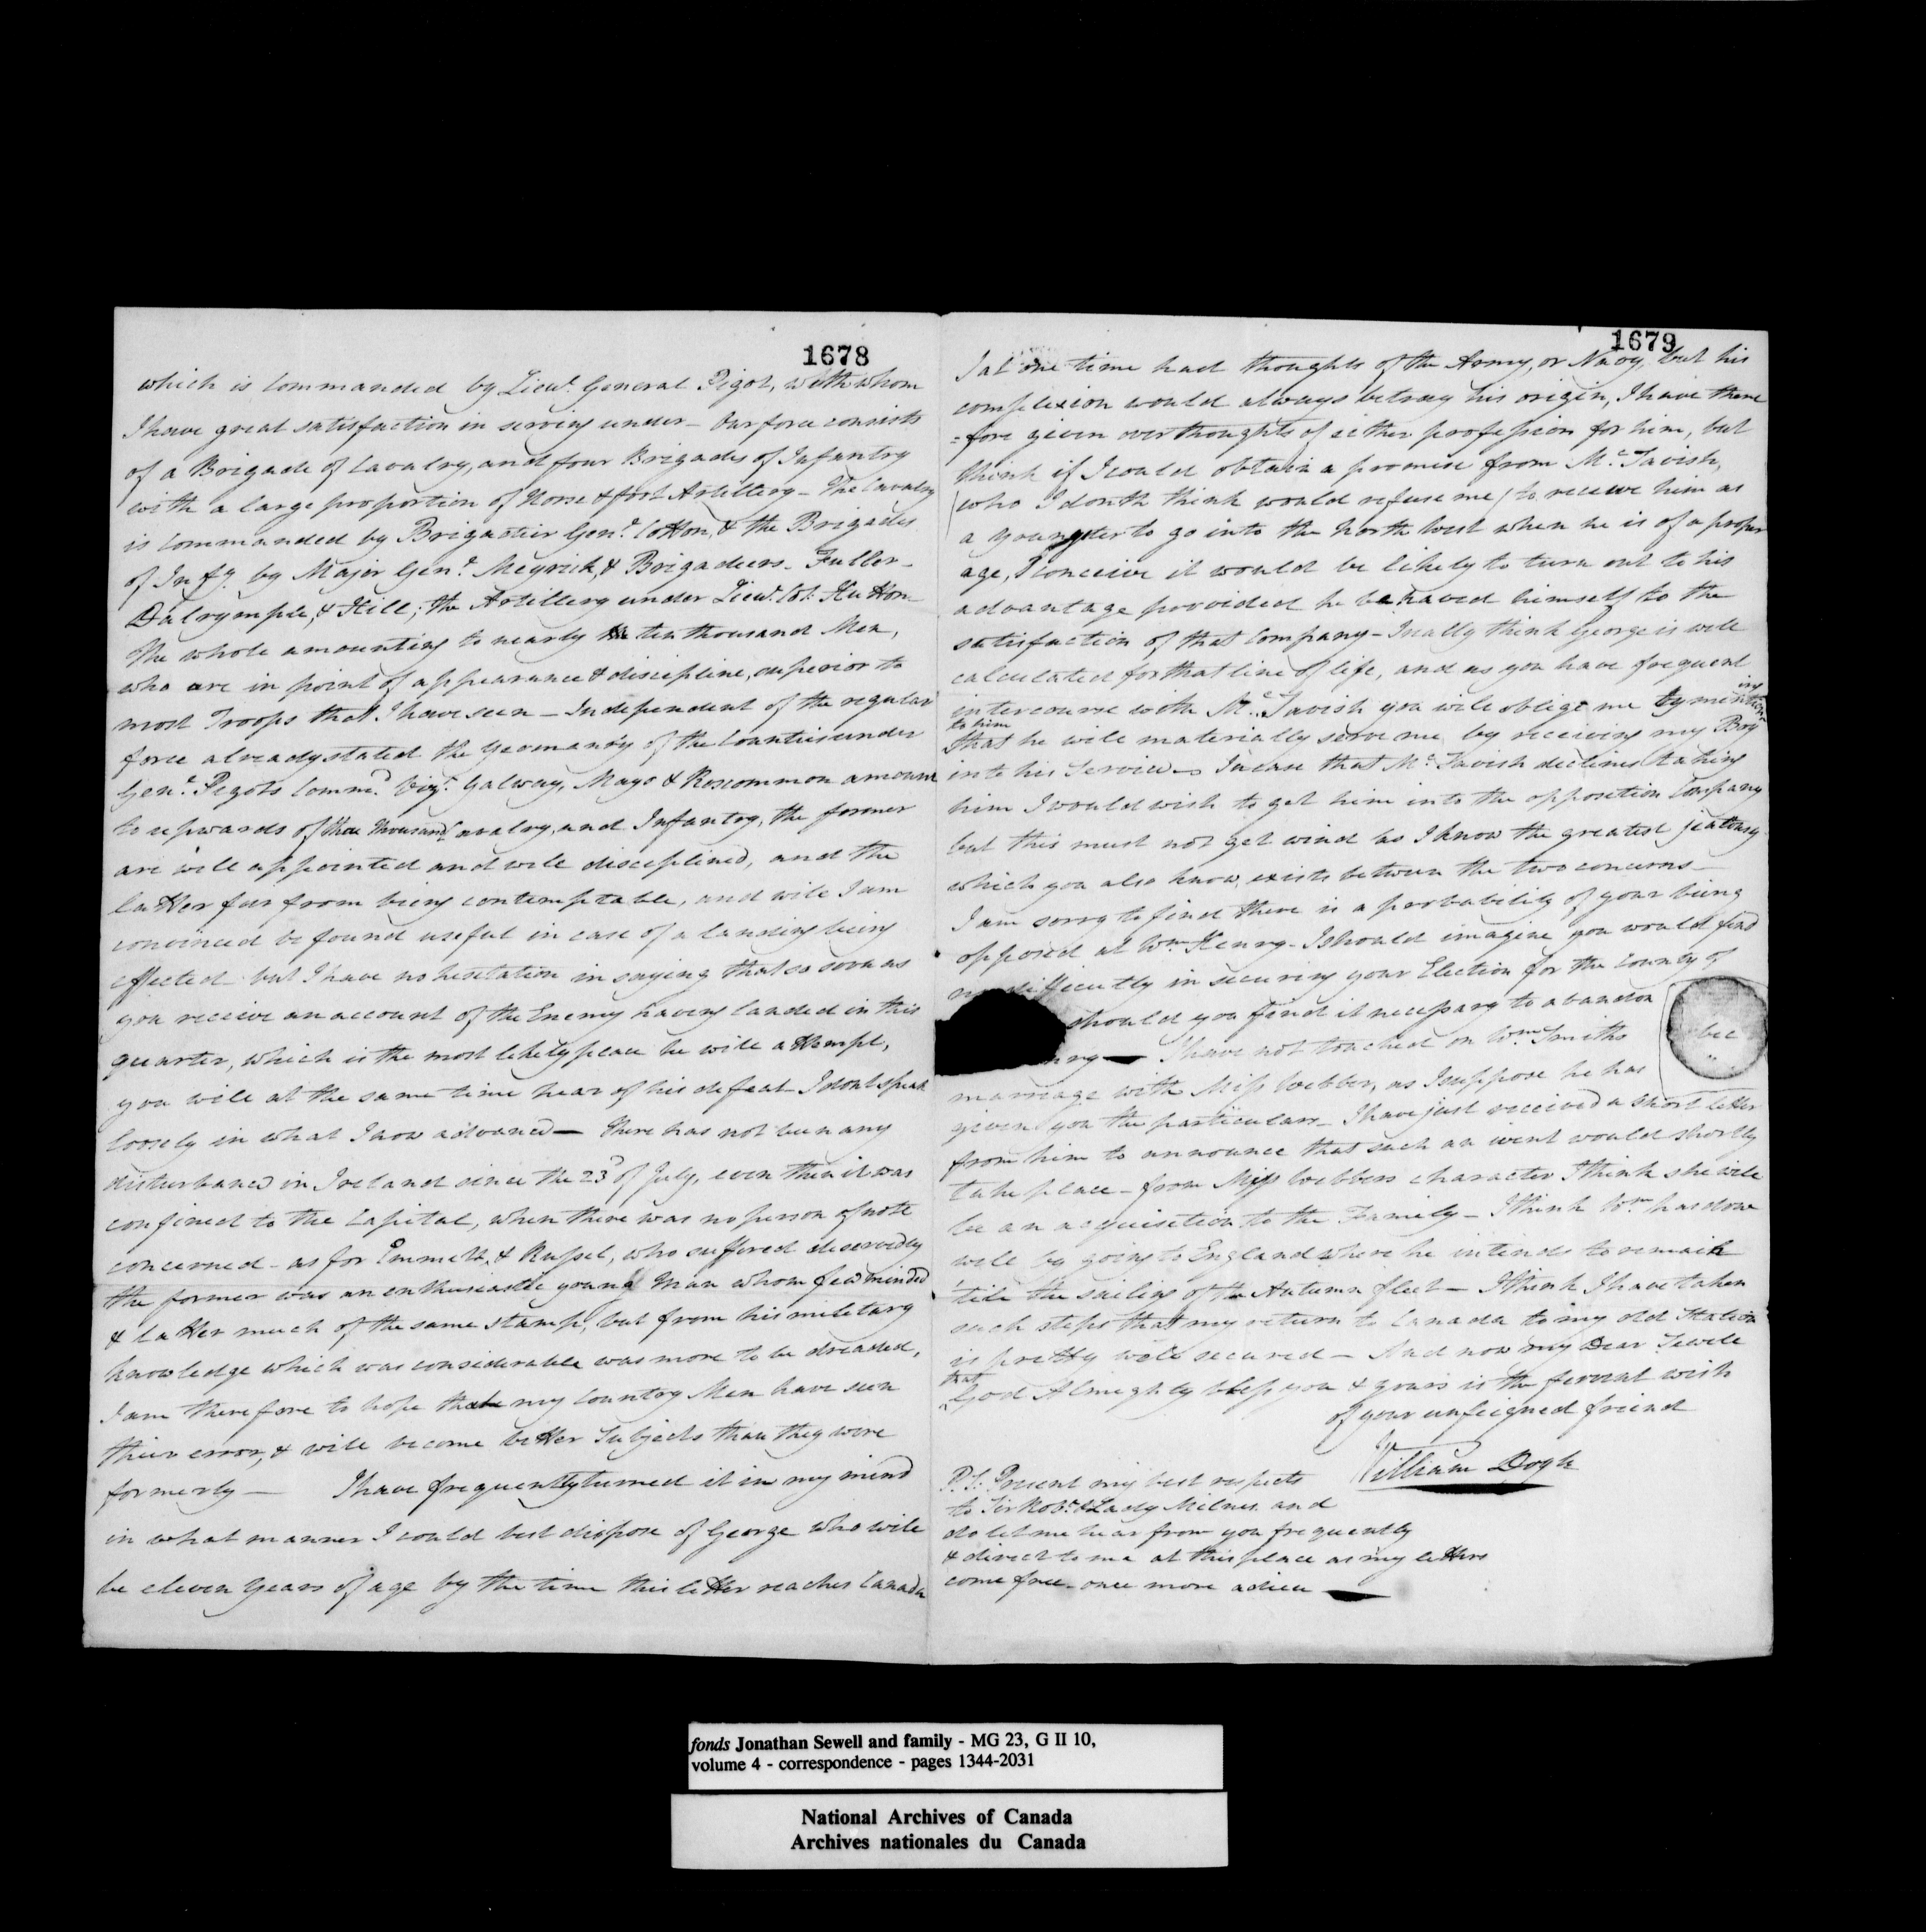 1678
which is Commanded by Lieut. General Pigot, with whom
I have great satisfaction in serving under - Our force consists
of a Brigade of Cavalry, and four Brigades of Infantry
with a large proportion of Horse & foot Artillery - The Cavalry
is Commanded by Brigadier Genl. Cotton, & the Brigades
of Infy. by Major Genl. Meyrick, & Brigadiers - Fuller -
Dalrymple, & Hill; the Artillery under Lieut. Col. Hutton
The whole amounting to nearly ten thousand Men,
who are in point of appearance & discipline, superior to
most Troops that I have seen - Independent of the regular
force already stated the Yeomanry of the Counties under
Genl. Pigots Commd. Vizt. Galway, Mayo & Roscommon amount
to upwards of three thousand Cavalry, and Infantry, the former
are well appointed and well disciplined, and the
latter far from being contemptable, and will I am
convinced be found useful in case of a landing being
effected - but I have no hesitation in saying that so soon as
you receive an account of the Enemy having landed in this
quarter, which is the most likely place he will attempt,
you will at the same time hear of his defeat I dont speak
loosely in what I now advance - There has not been any
disturbance in Ireland since the 23d of July, even then it was
confined to the Capital, when there was no person of note
concerned - as for Emmett, & Russel, who suffered deservedly
the former was an enthuseastic young Man whom few minded
& latter much of the same stamp, but from his military
knowledge which was considerable was more to be dreaded,
I am therefore to hope that my Country Men have seen
their error, & will become better Subjects than they were
formerly - I have frequently turned it in my mind
in what manner I could best dispose of George who will
be eleven Years of age by the time this letter reaches Canada
1679
I at one time had thoughts of the Army, or Navy, but his
complexion would always betray his origin, I have there
=fore given over thoughts of either profession for him, but
think if I could obtain a promise from Mc. Tavish,
(who I donth think would refuse me) to receive him as
a youngster to go into the North West when he is of a proper
age, I conceive it would be likely to turn out to his
advantage provided he behaved himself to the
satisfaction of that Company - I really think George is well
calculated for that line of life, and as you have frequent
intercourse with Mc. Tavish you will oblige me by mentioning
to him
that he will materially serve me by receiving my Boy
into his Service - In case that Mc. Tavish declines taking
him I would wish to get him into the opposition Company
but this must not get wind as I know the greatest jealousy
which you also know, exists between the two concerns -
I am sorry to find there is a probability of your being
opposed at Wm Henry - I should imagine you would find
no difficulty in securing your Election for the County of
should you find it necessary to abandon
nry - I have not touched on Wm. Smiths
bec
marriage with Miss Webber, as I suppose he has
given you the particulars - I have just received a short letter
from him to announce that such an event would shortly
take place - from Miss Webbers character I think she will
be an acquisition to the Family - I think Wm has done
well by going to England where he intends to remain
'till the sailing of the Autumn fleet - I think I have taken
such steps that my return to Canada to my old Station
is pretty well secured - And now my Dear Sewell
that
God Almighty bless you & yours is the fervent wish
of your unfeigned friend
William Dogh
P.S. Present my best respects
to Sir Robt. & Lady Milnes and
do let me hear from you frequently
& direct to me at this place as my letters
come free - once more adieu
fonds Jonathan Sewell and family - MG 23, G II 10,
volume 4 - correspondence - pages 1344-2031
National Archives of Canada
Archives nationales du Canada